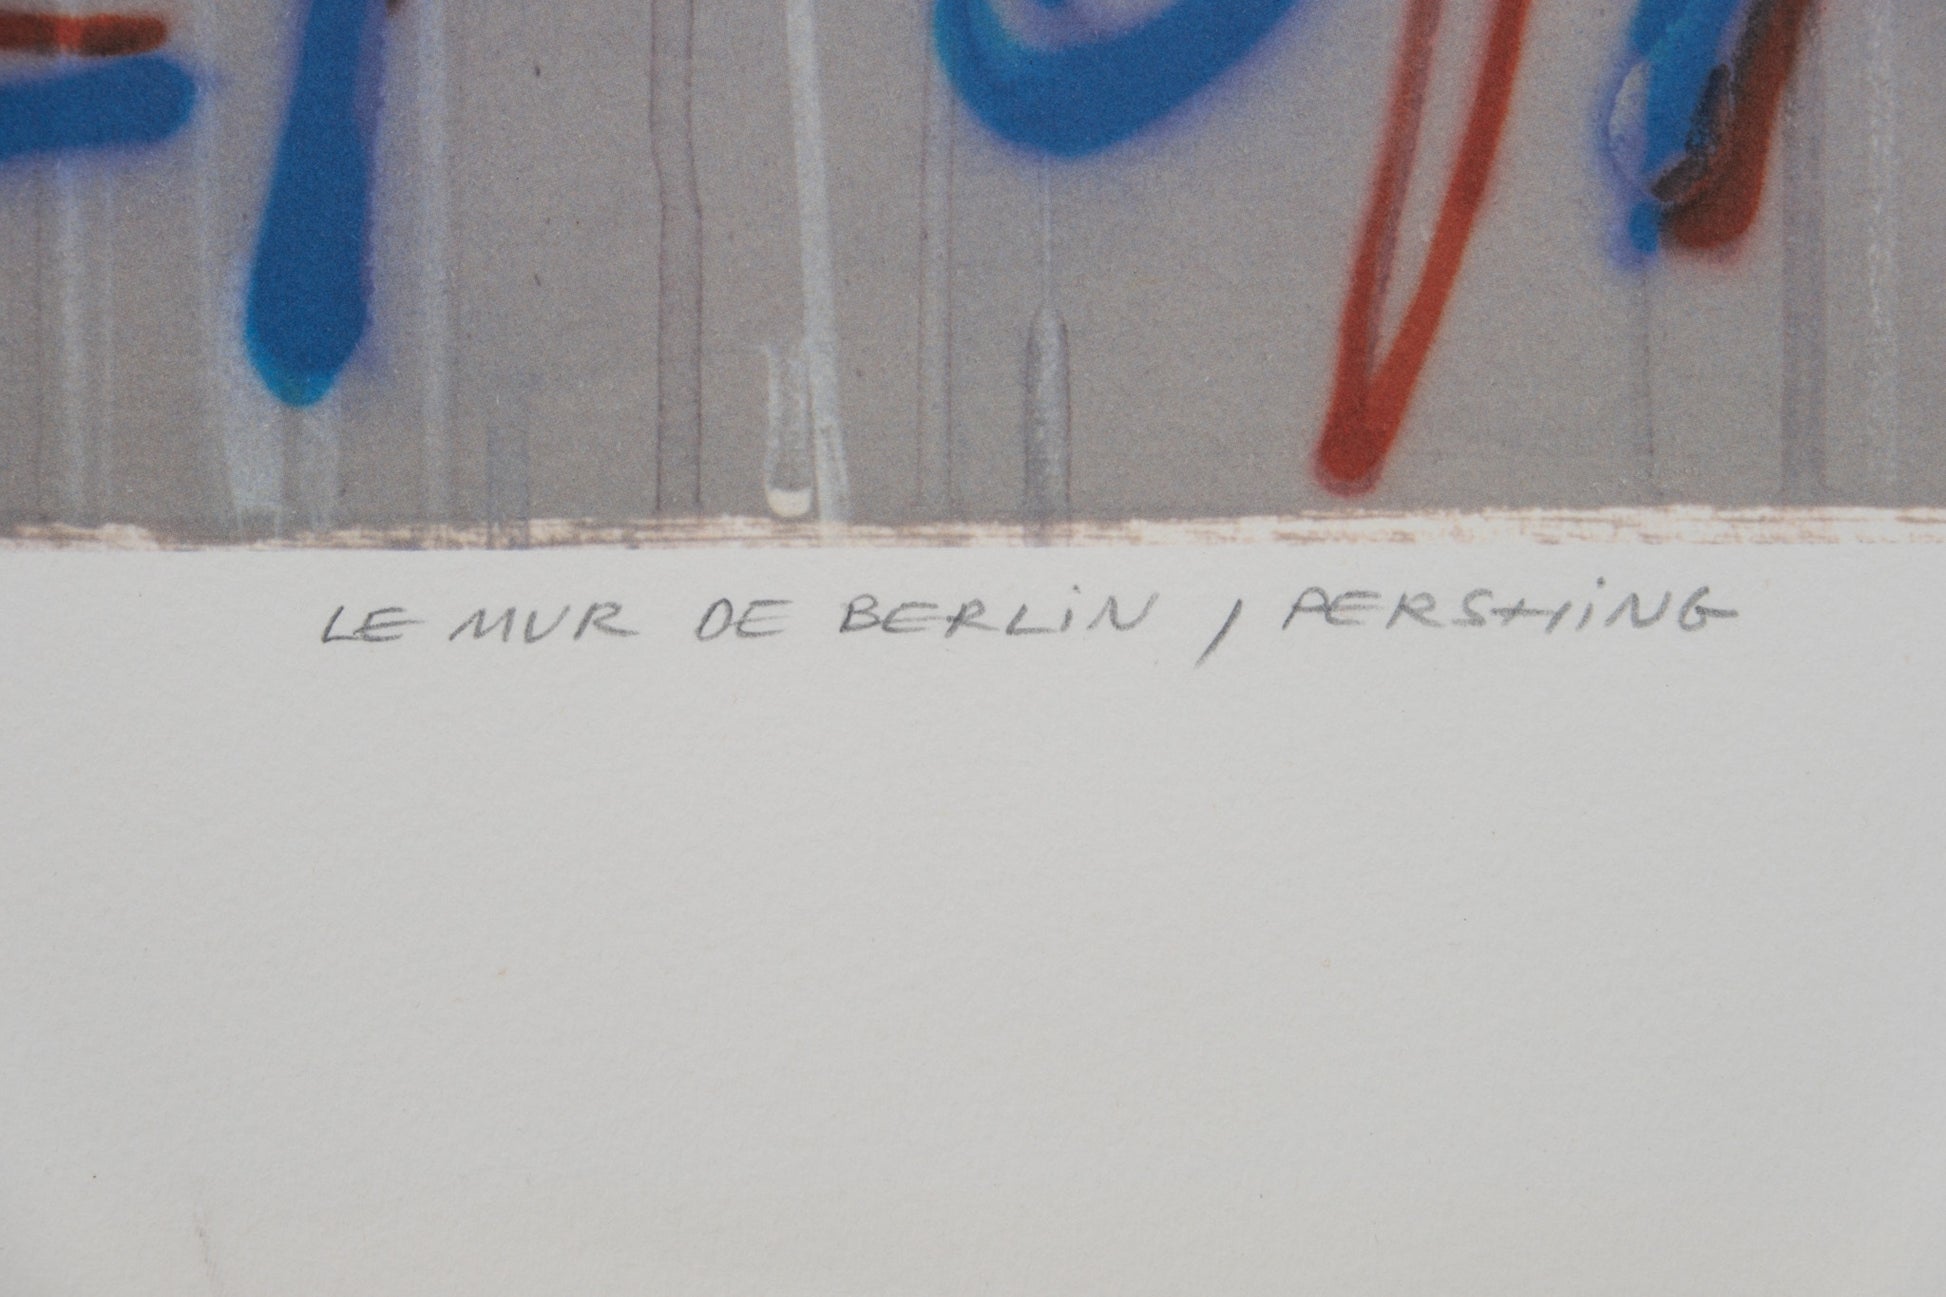 LE MUR DE BERLiN, PERSHiNG